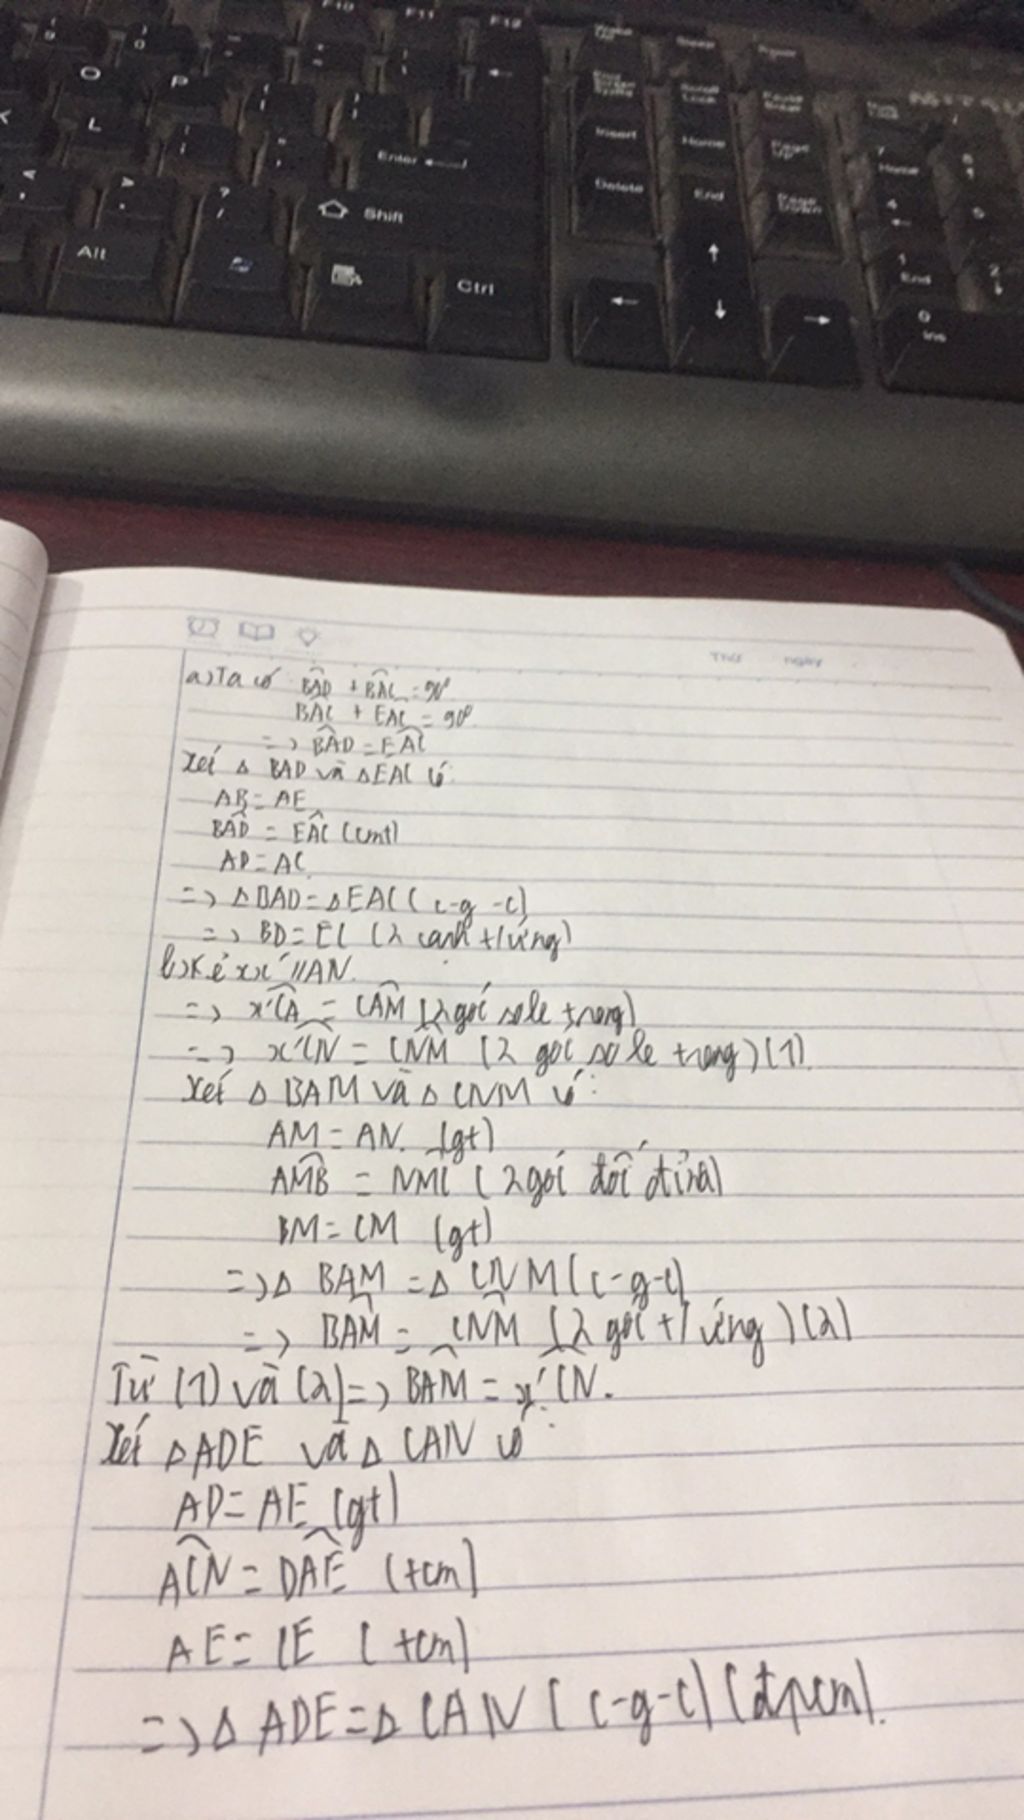 F10 F11 F12
O P
L Enter
Insert Home Page Up
Delete End Page Down
Shift
Alt Ctrl
7 Home
4
1 End 2
0 Ins
Thứ ngày
a) Ta có BAD + BAC = 90°
BAC + EAC = 90°
=> BAD = EAC
Xét Δ BAD và Δ EAC có:
AB = AE
BAD = EAC (cmt)
AD = AC
=> Δ BAD = Δ EAC (c-g-c)
=> BD = EC (2 cạnh t/ứng)
b) Kẻ xx' // AN
=> x'CA = CAM (2 góc so le trong)
=> x'CN = CNM (2 góc so le trong) (1)
Xét Δ BAM và Δ CNM có:
AM = AN (gt)
AMB = NMC (2 góc đối đỉnh)
BM = CM (gt)
=> Δ BAM = Δ CNM (c-g-c)
=> BAM = CNM (2 góc t/ứng) (2)
Từ (1) và (2) => BAM = x'CN.
Xét Δ ADE và Δ CAN có:
AD = AE (gt)
ACN = DAE (tcm)
AE = CE (tcm)
=> Δ ADE = Δ CAN (c-g-c) (đpcm).